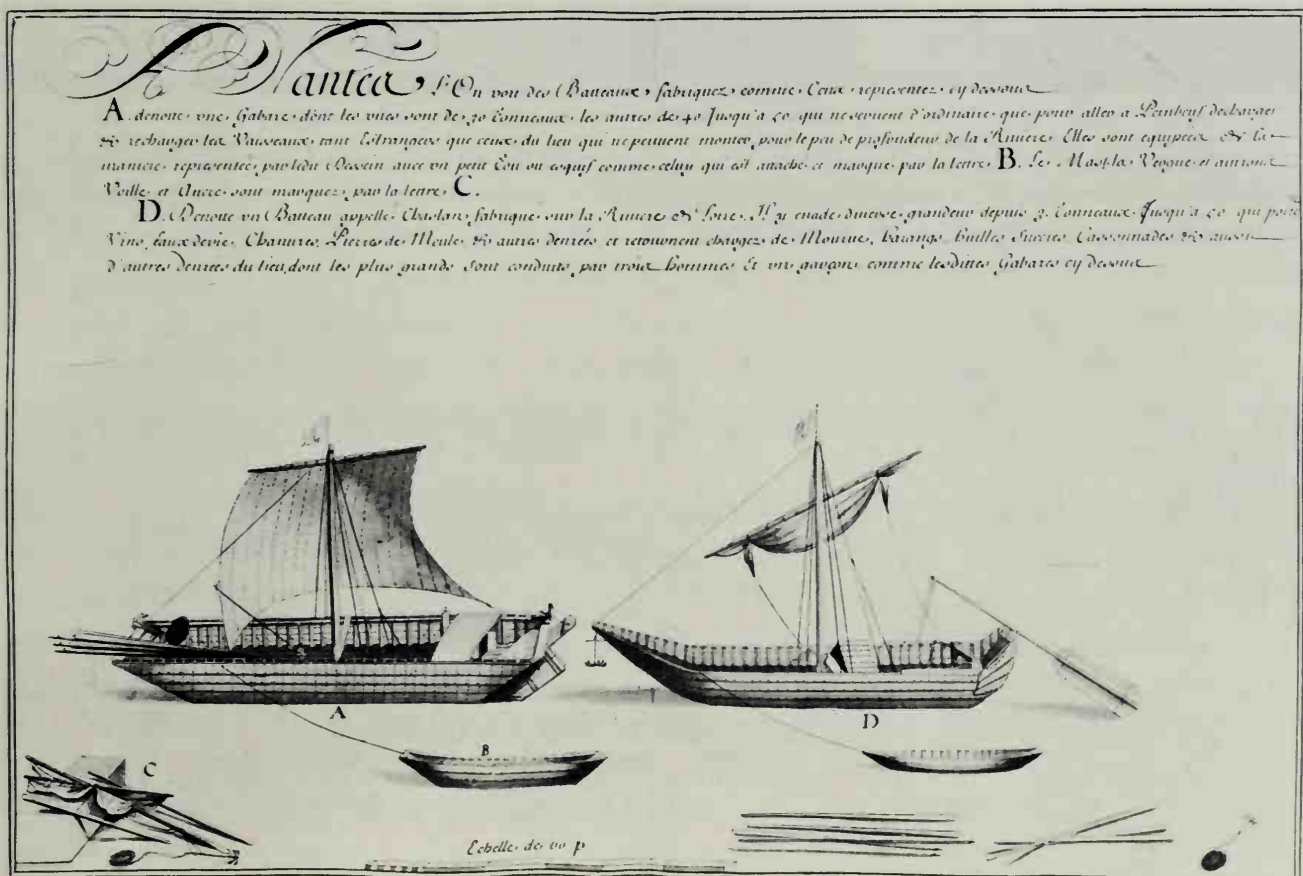 A Nantes L'On voit des Batteaux fabriquez comme Ceux representez cy dessous
A. denotte une Gabare dont les unes sont de 30 Tonneaux les autres de 40 Jusqu'a 50 qui ne servent d'ordinaire que pour aller a Peinbeuf descharger
& rechanger les Vaisseaux tant Estrangers que ceux du lieu qui ne peuvent monter pour le peu de profondeur de la Riviere Elles sont equipées de la
maniere representée par ledit Dessein avec un petit Cou ou esquif comme celuy qui est attaché et marqué par la lettre B. Le Mast la Vergue et avirons
Voille et Ancre sont marquez par la lettre C.
D. Denotte un Batteau appellé Chaslan fabriqué sur la Riviere de Loire Il y en a de diverse grandeur depuis Tonneaux Jusqu'a 50 qui porte
Vins, Eaux devie, Chanvres, Pierres de Moule & autres denrées et retournent chargez de Mourue, Harangs, huilles Sucres Cassonnades & aussy
d'autres denrées du lieu dont les plus grands sont conduits par trois hommes Et un garçon comme lesdittes Gabares cy dessus
A
D
B
C
Echelle de p